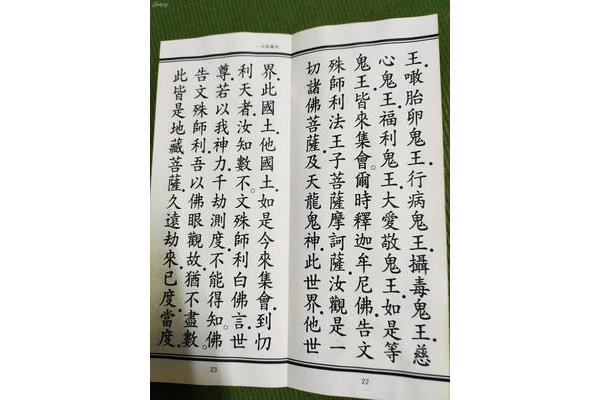 王．噉胎卵鬼王．行病鬼王．攝毒鬼王．慈
心鬼王．福利鬼王．大愛敬鬼王．如是等
鬼王．皆來集會。爾時釋迦牟尼佛．告文
殊師利法王子菩薩摩訶薩．汝觀是一
切諸佛菩薩．及天龍鬼神．此世界．他世
22
界．此國土．他國土．如是今來集會．到忉
利天者．汝知數不。文殊師利白佛言．世
尊．若以我神力．千劫測度．不能得知。佛
告文殊師利．吾以佛眼觀故．猶不盡數。
此皆是地藏菩薩．久遠劫來．已度．當度．
23